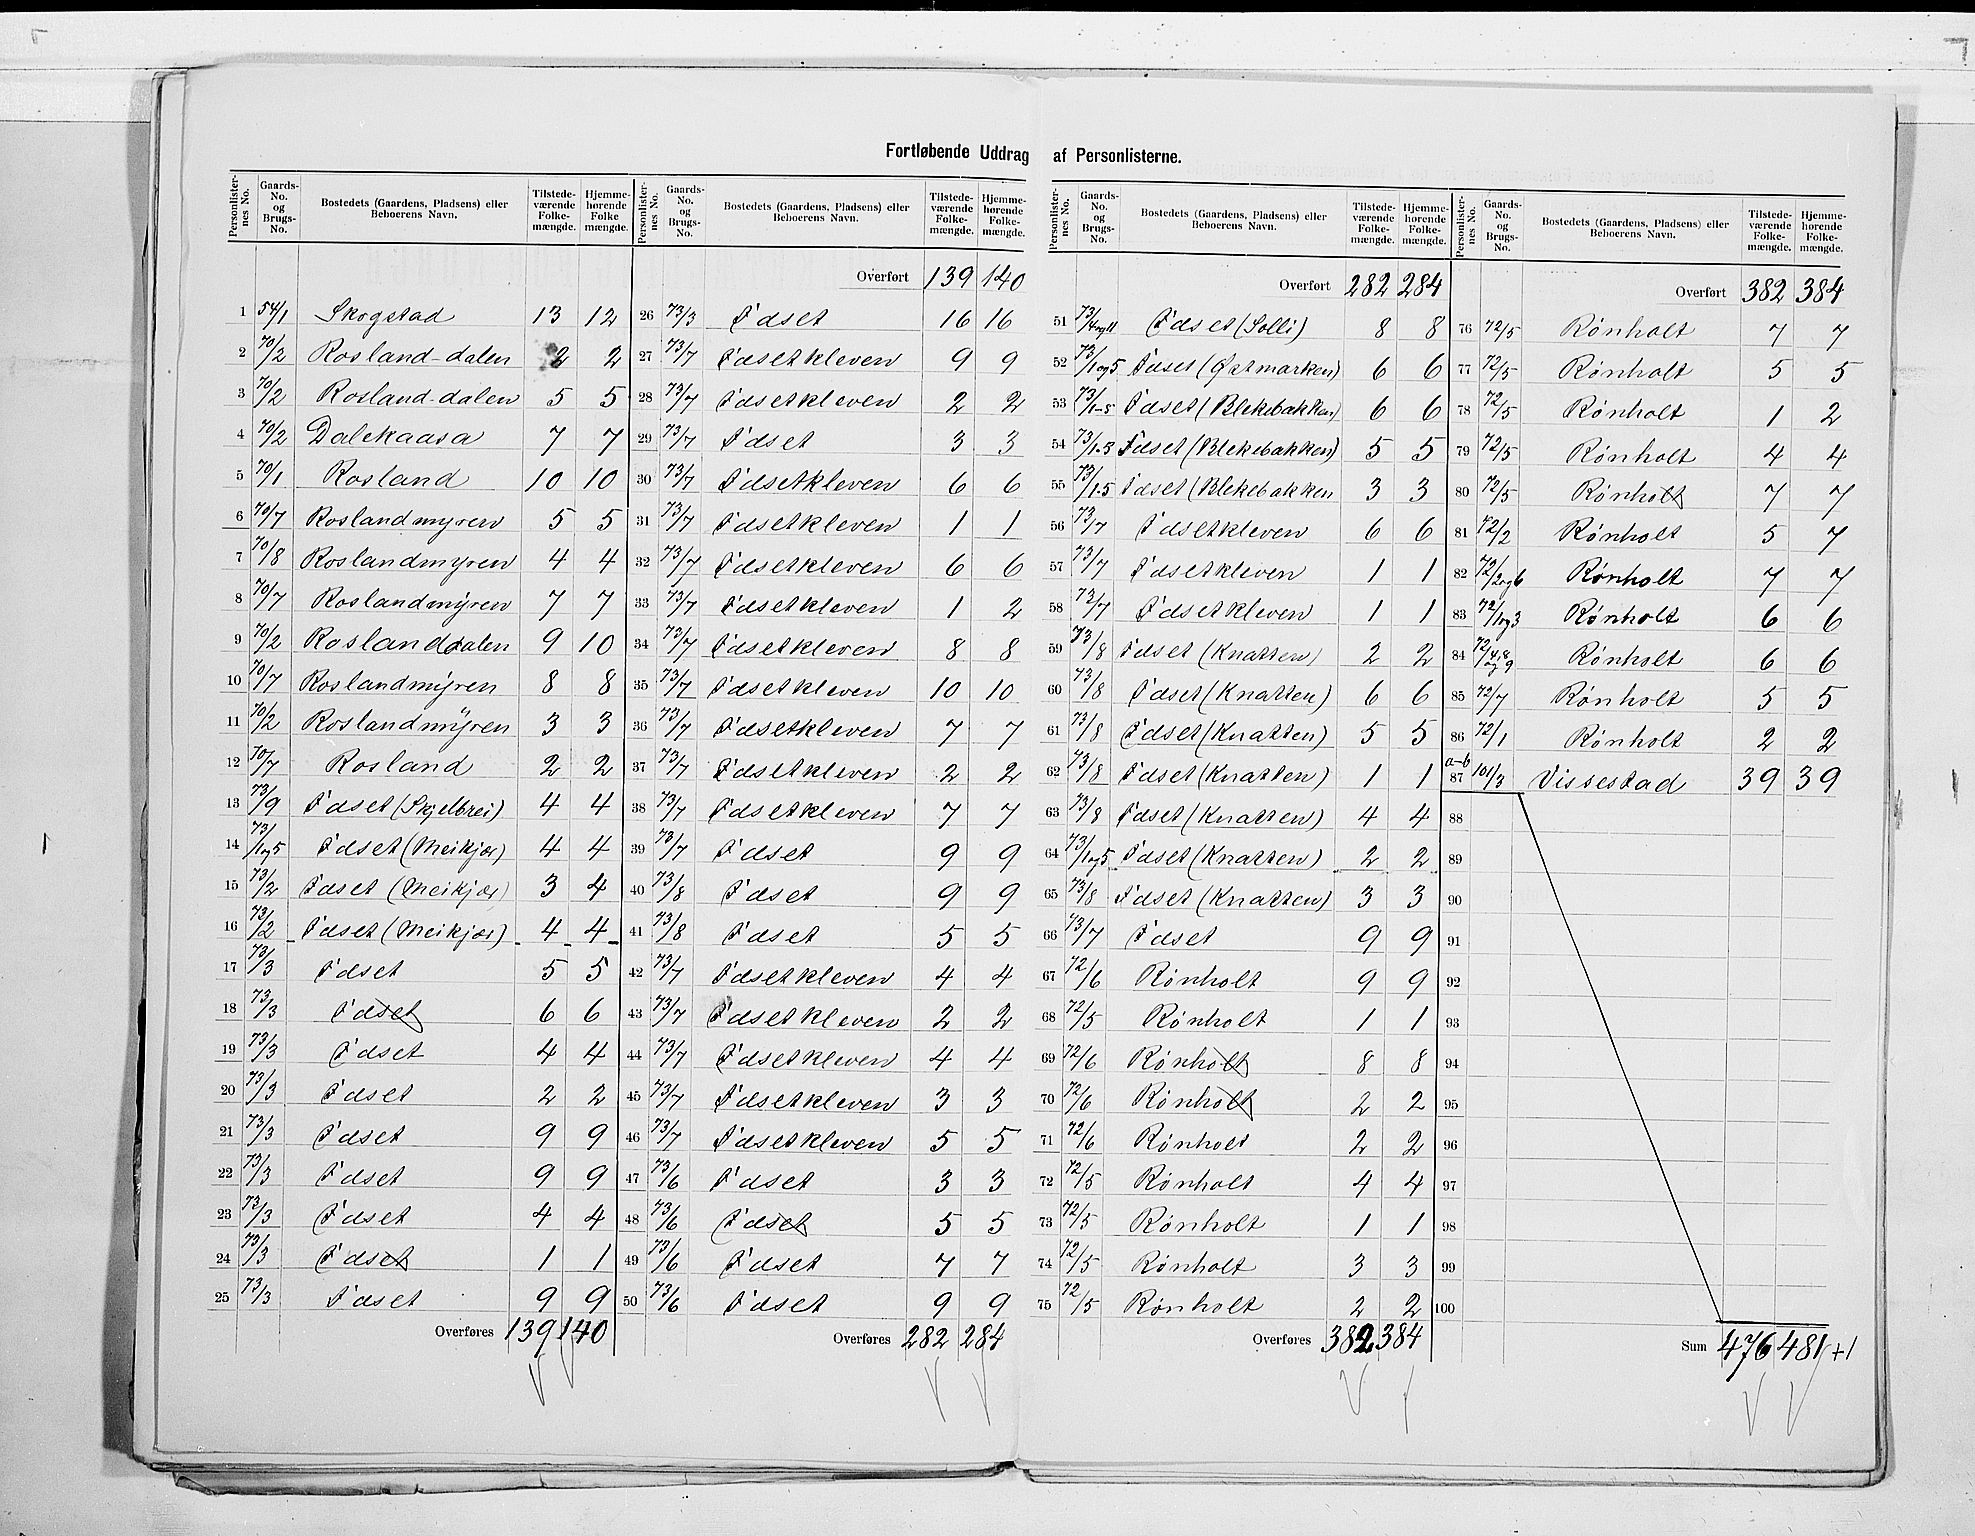 Fortløbende Uddrag af Personlisterne.
Personlister-nes No. | Gaards-No. og Brugs-No. | Bostedets (Gaardens, Pladsens) eller Beboerens Navn. | Tilstede-værende Folke-mængde. | Hjemme-hørende Folke mængde.
1 54/1 Skogstad 13 12
2 70/2 Rosland-dalen 2 2
3 70/2 Rosland-dalen 5 5
4 70/2 Dalekaasa 7 7
5 70/1 Rosland 10 10
6 70/7 Roslandmyren 5 5
7 70/8 Roslandmyren 4 4
8 70/7 Roslandmyren 7 7
9 70/2 Roslanddalen 9 10
10 70/7 Roslandmyren 8 8
11 70/2 Roslandmyren 3 3
12 70/7 Rosland 2 2
13 73/9 Idset (Skjelbrei) 4 4
14 73/1og5 Idset (Meikjær) 4 4
15 73/2 Idset (Meikjær) 3 4
16 73/2 Idset (Meikjær) 4 4
17 73/3 Idset 5 5
18 73/3 Idset 6 6
19 73/3 Idset 4 4
20 73/3 Idset 2 2
21 73/3 Idset 9 9
22 73/3 Idset 9 9
23 73/3 Idset 4 4
24 73/3 Idset 1 1
25 73/3 Idset 9 9
Overføres 139 140
Personlister-nes No. | Gaards-No. og Brugs-No. | Bostedets (Gaardens, Pladsens) eller Beboerens Navn. | Tilstede-værende Folke-mængde. | Hjemme-hørende Folke-mængde.
Overført 139 140
26 73/3 Idset 16 16
27 73/7 Idsetkleven 9 9
28 73/7 Idsetkleven 2 2
29 73/7 Idset 3 3
30 73/7 Idsetkleven 6 6
31 73/7 Idsetkleven 1 1
32 73/7 Idsetkleven 6 6
33 73/7 Idsetkleven 1 2
34 73/7 Idsetkleven 8 8
35 73/7 Idsetkleven 10 10
36 73/7 Idsetkleven 7 7
37 73/7 Idsetkleven 2 2
38 73/7 Idsetkleven 7 7
39 73/7 Idset 9 9
40 73/8 Idset 9 9
41 73/8 Idset 5 5
42 73/7 Idsetkleven 4 4
43 73/7 Idsetkleven 2 2
44 73/7 Idsetkleven 4 4
45 73/7 Idsetkleven 3 3
46 73/7 Idsetkleven 5 5
47 73/6 Idset 3 3
48 73/6 Idset 5 5
49 73/6 Idset 7 7
50 73/6 Idset 9 9
Overføres 282 284
Personlister-nes No. | Gaards-No. og Brugs-No. | Bostedets (Gaardens, Pladsens) eller Beboerens Navn. | Tilstede-værende Folke-mængde. | Hjemme-hørende Folke-mængde.
Overført 282 284
51 73/4og11 Idset (Solli) 8 8
52 73/1og5 Idset (Østmarken) 6 6
53 73/1-5 Idset (Blekebakken) 6 6
54 73/1-5 Idset (Blekebakken) 5 5
55 73/1-5 Idset (Blekebakken 3 3
56 73/7 Idsetkleven 6 6
57 73/7 Idsetkleven 1 1
58 73/7 Idsetkleven 1 1
59 73/8 Idset (Knatten) 2 2
60 73/8 Idset (Knatten) 6 6
61 73/8 Idset (Knatten) 5 5
62 73/8 Idset (Knatten) 1 1
63 73/8 Idset (Knatten) 4 4
64 73/1og5 Idset (Knatten) 2 2
65 73/8 Idset (Knatten) 3 3
66 73/7 Idset 9 9
67 72/6 Rønholt 9 9
68 72/5 Rønholt 1 1
69 72/6 Rønholt 8 8
70 72/6 Rønholt 2 2
71 72/6 Rønholt 2 2
72 72/5 Rønholt 4 4
73 72/5 Rønholt 1 1
74 72/5 Rønholt 3 3
75 72/5 Rønholt 2 2
Overføres 382 384
Personlister-nes No. | Gaards-No. og Brugs-No. | Bostedets (Gaardens, Pladsens) eller Beboerens Navn. | Tilstede-værende Folke-mængde. | Hjemme-hørende Folke-mængde.
Overført 382 384
76 72/5 Rønholt 7 7
77 72/5 Rønholt 5 5
78 72/5 Rønholt 1 2
79 72/5 Rønholt 4 4
80 72/5 Rønholt 7 7
81 72/2 Rønholt 5 7
82 72/2og6 Rønholt 7 7
83 72/1og3 Rønholt 6 6
84 72/4,8 og 9 Rønholt 6 6
85 72/7 Rønholt 5 5
86 72/1 Rønholt 2 2
87 a-b 101/3 Vissestad 39 39
88
89
90
91
92
93
94
95
96
97
98
99
100
Sum 476 481 +1